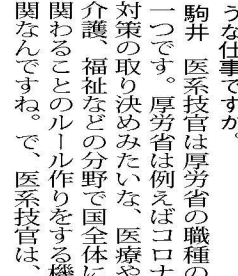 うな仕事ですか。
駒井　医系技官は厚労省の職種の
一つです。厚労省は例えばコロナ
対策の取り決めみたいな、医療や
介護、福祉などの分野で国全体に
関わることのルール作りをする機
関なんですね。で、医系技官は、